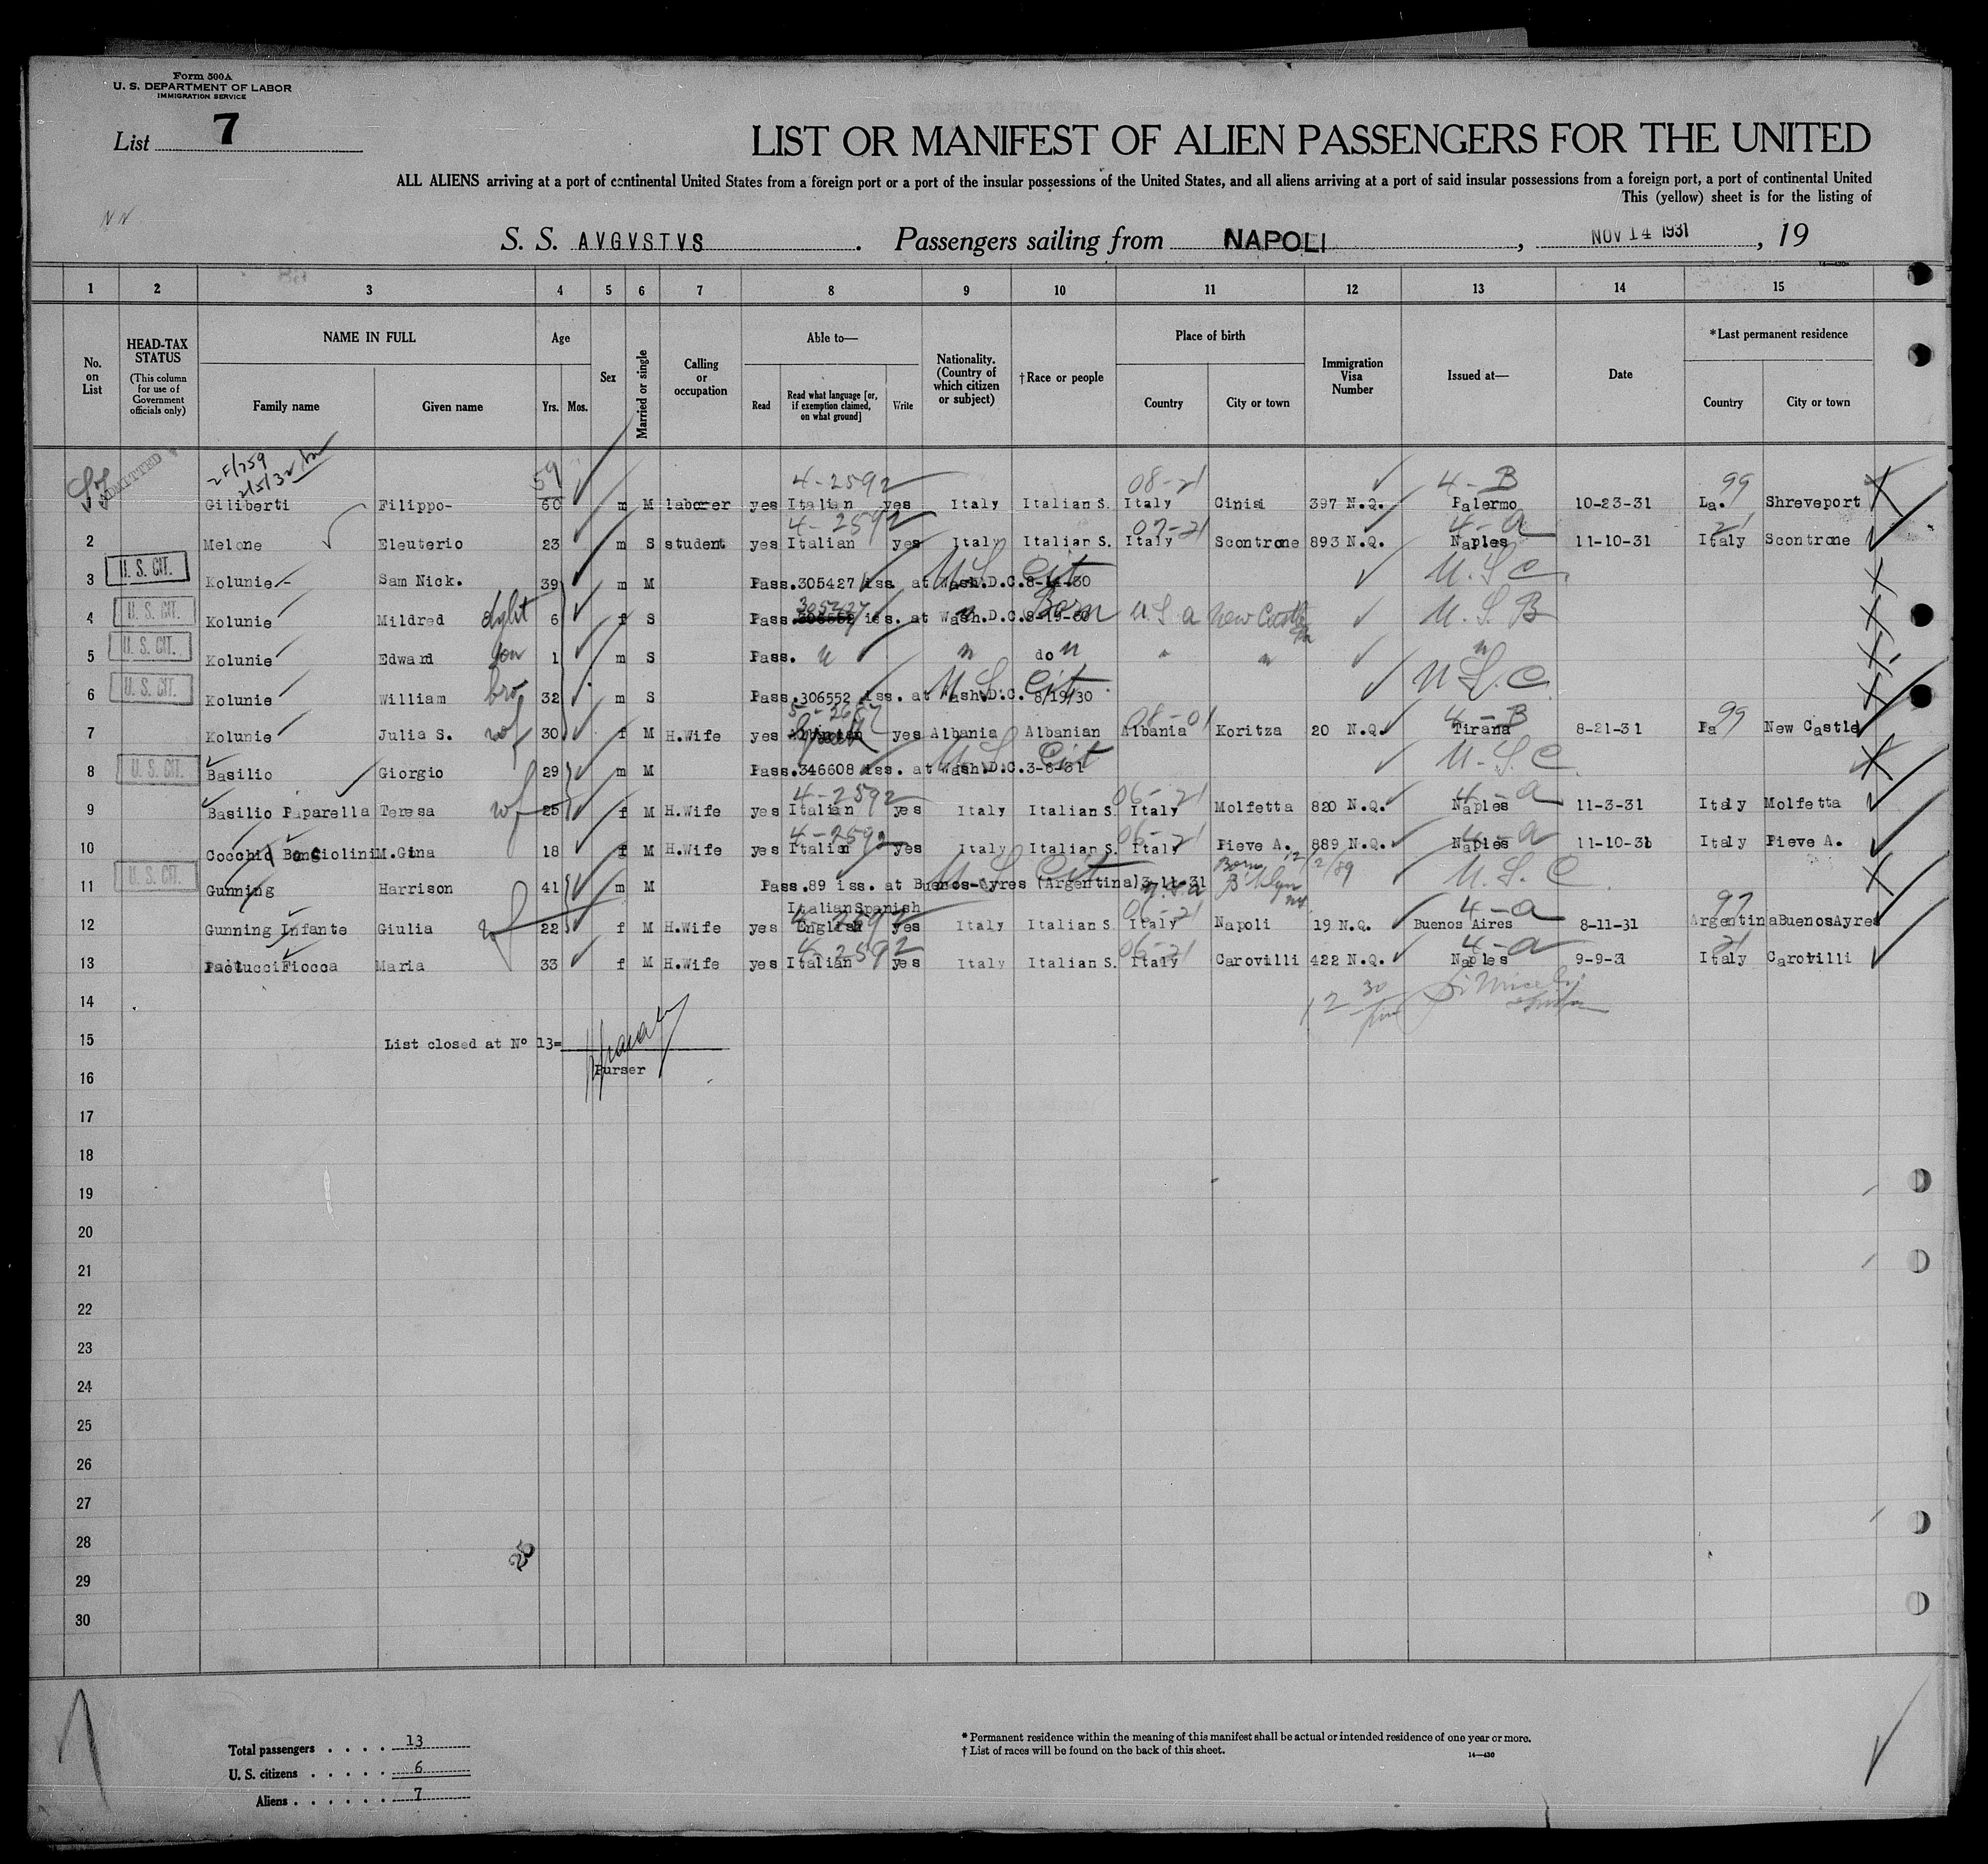 Form 500A
U. S. DEPARTMENT OF LABOR
IMMIGRATION SERVICE
List 7
LIST OR MANIFEST OF ALIEN PASSENGERS FOR THE UNITED
ALL ALIENS arriving at a port of continental United States from a foreign port or a port of the insular possessions of the United States, and all aliens arriving at a port of said insular possessions from a foreign port, a port of continental United
This (yellow) sheet is for the listing of
S. S. AVGVSTVS. Passengers sailing from NAPOLI, NOV 14 1931, 19
1 2 3 4 5 6 7 8 9 10 11 12 13 14 15
No. on List
HEAD-TAX STATUS (This column for use of Government officials only)
NAME IN FULL
Family name Given name
Age Yrs. Mos.
Sex
Married or single
Calling or occupation
Able to—
Read Read what language [or, if exemption claimed, on what ground] Write
Nationality. (Country of which citizen or subject)
†Race or people
Place of birth
Country City or town
Immigration Visa Number
Issued at—
Date
*Last permanent residence
Country City or town
ADMITTED
2/5/32
59 4-2592 08-21 4-B 99
Giliberti Filippo- 60 m M laborer yes Italian yes Italy Italian S. Italy Cinisi 397 N.Q. Palermo 10-23-31 La. Shreveport
4-2592 07-21 4-a 21
2 Melone Eleuterio 23 m S student yes Italian yes Italy Italian S. Italy Scontrone 893 N.Q. Naples 11-10-31 Italy Scontrone
3 U. S. CIT. Kolunie- Sam Nick. 39 m M Pass.305427 iss. at Wash.D.C.8-14-30 U S Cit U.S.C.
305427
4 U. S. CIT. Kolunie Mildred 6 f S Pass.306552 iss. at Wash.D.C.8-19-30 " Born U.S.a New Castle Pa U.S.B
5 U. S. CIT. Kolunie Edward son 1 m S Pass. " " do " " " "
6 U. S. CIT. Kolunie William bro 32 m S Pass.306552 iss. at Wash.D.C. 8/19/30 U S Cit. U.S.C.
08-01 4-B 99
7 Kolunie Julia S. wf 30 f M H.Wife yes Greek yes Albania Albanian Albania Koritza 20 N.Q. Tirana 8-21-31 Pa New Castle
8 U. S. CIT. Basilio Giorgio 29 m M Pass.346608 iss. at Wash.D.C.3-6-31 U S Cit U.S.C.
4-2592 06-21 4-a
9 Basilio Paparella Teresa wf 25 f M H.Wife yes Italian yes Italy Italian S. Italy Molfetta 820 N.Q. Naples 11-3-31 Italy Molfetta
4-2592 06-21 4-a
10 Cocchid Bongiolini M.Gina 18 f M H.Wife yes Italian yes Italy Italian S. Italy Pieve A. 889 N.Q. Naples 11-10-31 Italy Pieve A.
Born 12/2/89 B'klyn NY
11 U. S. CIT. Gunning Harrison 41 m M Pass.89 iss. at Buenos-Ayres (Argentina)3-11-31 U S Cit U.S.a U.S.C.
Italian Spanish
4-2592 4-a 97
12 Gunning Infante Giulia wf 22 f M H.Wife yes English yes Italy Italian S. Italy Napoli 19 N.Q. Buenos Aires 8-11-31 Argentina BuenosAyres
4-2592 06-21 4-a 21
13 Paolucci Fiocca Maria 33 f M H.Wife yes Italian yes Italy Italian S. Italy Carovilli 422 N.Q. Naples 9-9-31 Italy Carovilli
14 12 30
15 List closed at Nº 13=
Purser
16
17
18
19
20
21
22
23
24
25
26
27
28
29
30
Total passengers . . . . 13
U. S. citizens . . . . . 6
Aliens . . . . . . 7
* Permanent residence within the meaning of this manifest shall be actual or intended residence of one year or more.
† List of races will be found on the back of this sheet.
14—430